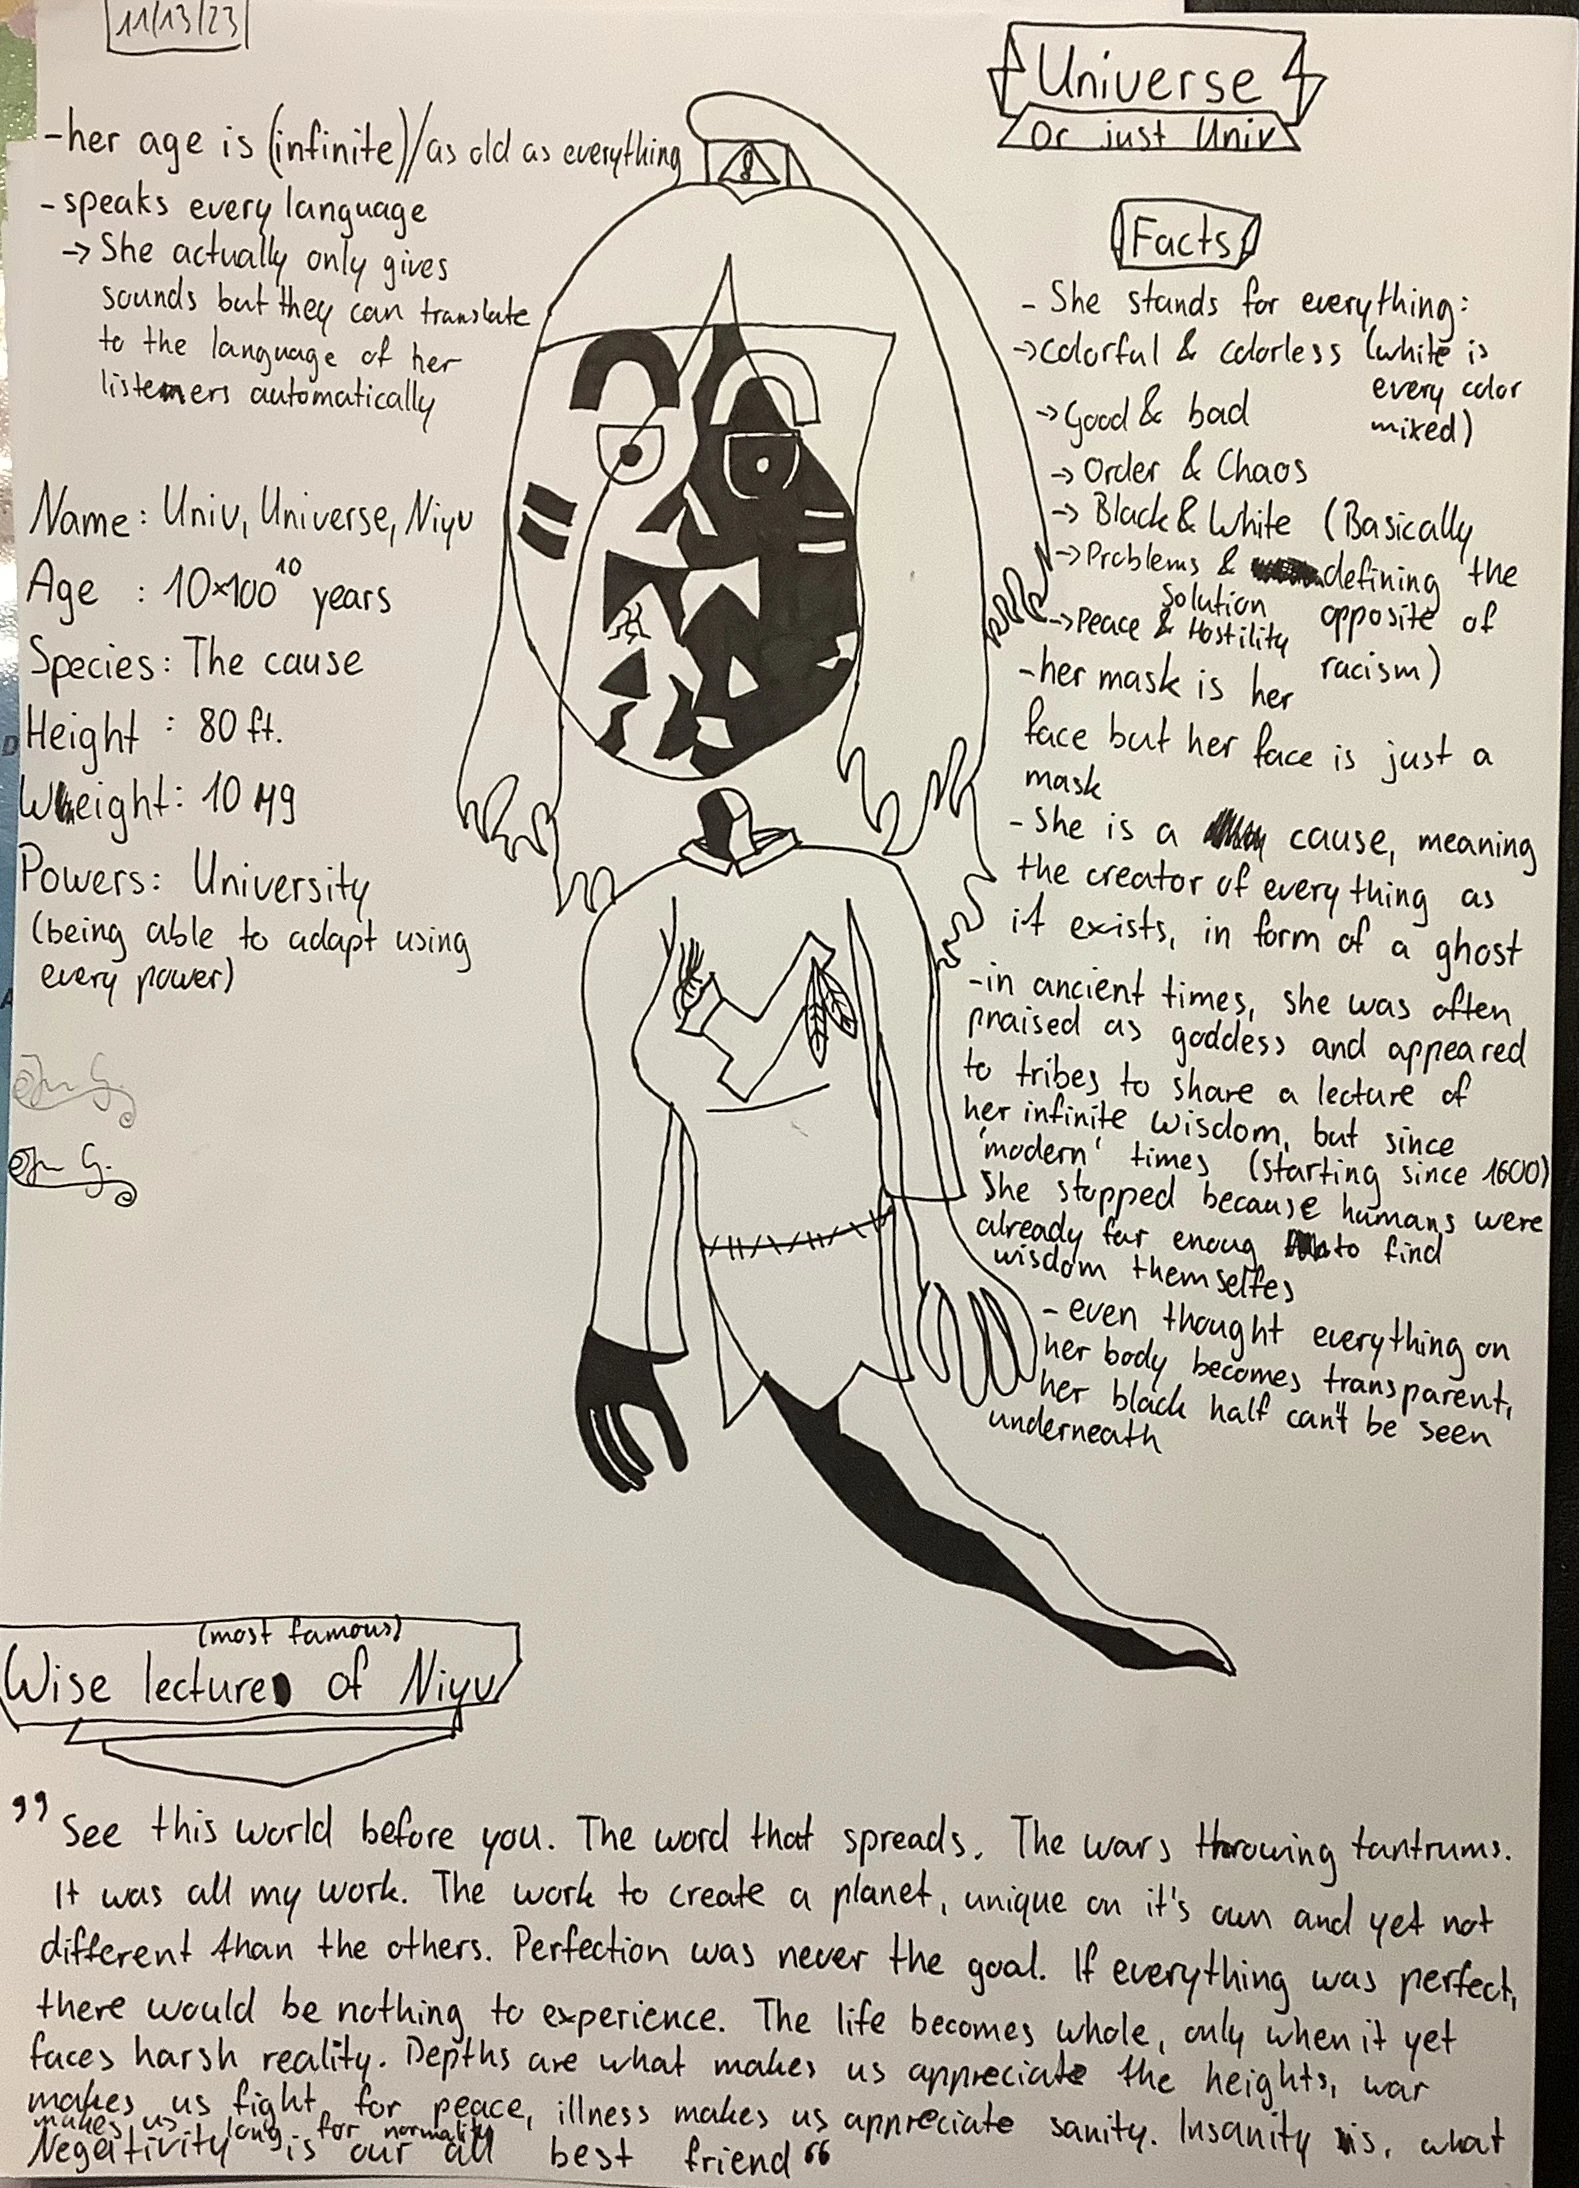 11/13/23
Universe
Or just Univ
-her age is (infinite)/as old as everything
-speaks every language
→ She actually only gives
sounds but they can translate
to the language of her
listeners automatically
Name: Univ, Universe, Niyu
Age : 10×100¹⁰ years
Species: The cause
Height : 80 ft.
Weight: 10 µg
Powers: University
(being able to adapt using
every power)
Facts
- She stands for everything:
→colorful & colorless (white is
every color
mixed)
→Good & bad
→ Order & Chaos
→ Black & White (Basically
defining the
opposite of
racism)
→Problems &
solution
→Peace & Hostility
-her mask is her
face but her face is just a
mask
-She is a cause, meaning
the creator of everything as
it exists, in form of a ghost
-in ancient times, she was often
praised as goddess and appeared
to tribes to share a lecture of
her infinite wisdom, but since
'modern' times (starting since 1600)
She stopped because humans were
already far enoug to find
wisdom themselfes
-even thought everything on
her body becomes transparent,
her black half can't be seen
underneath
(most famous)
Wise lecture of Niyu
,,See this world before you. The word that spreads. The wars throwing tantrums.
It was all my work. The work to create a planet, unique on it's own and yet not
different than the others. Perfection was never the goal. If everything was perfect,
there would be nothing to experience. The life becomes whole, only when it yet
faces harsh reality. Depths are what makes us appreciate the heights, war
makes us fight for peace, illness makes us appreciate sanity. Insanity is, what
makes us long for normality
Negativity is our all best friend“